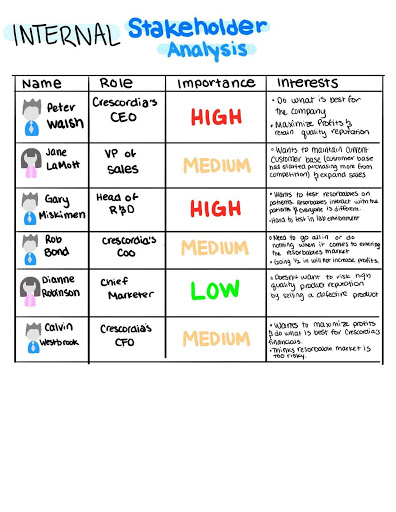 INTERNAL Stakeholder
Analysis
Name Role Importance Interests
Peter
Walsh
Crescordia's
CEO
HIGH
• Do what is best for
the company
• Maximize Profits &
retain quality reputation
Jane
LaMott
VP of
Sales
MEDIUM
• Wants to maintain current
customer base (customer base
had started purchasing more from
competition) & expand sales
Gary
Miskimen
Head of
R&D
HIGH
• Wants to test resorbables on
patients. Resorbables interact with the
patients & everyone is different.
• Hard to test in lab environment
Rob
Bond
Crescordia's
COO
MEDIUM
• Need to go all in or do
nothing when it comes to entering
the resorbables market
• Going 1/2 in will not increase profits.
Dianne
Robinson
Chief
Marketer
LOW
• Doesn't want to risk high
quality product reputation
by selling a defective product
Calvin
Westbrook
Crescordia's
CFO
MEDIUM
• Wants to maximize profits
& do what is best for Crescordia's
financials.
• Thinks resorbable market is
too risky.